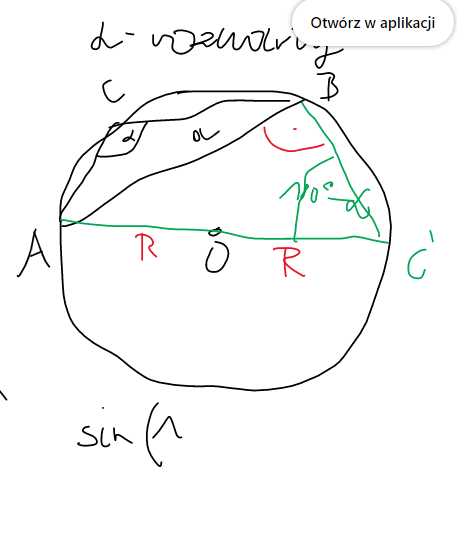 Otwórz w aplikacji
α - rozwarty
C
B
α
a
180° - α
A
R
O
R
C'
sin (1